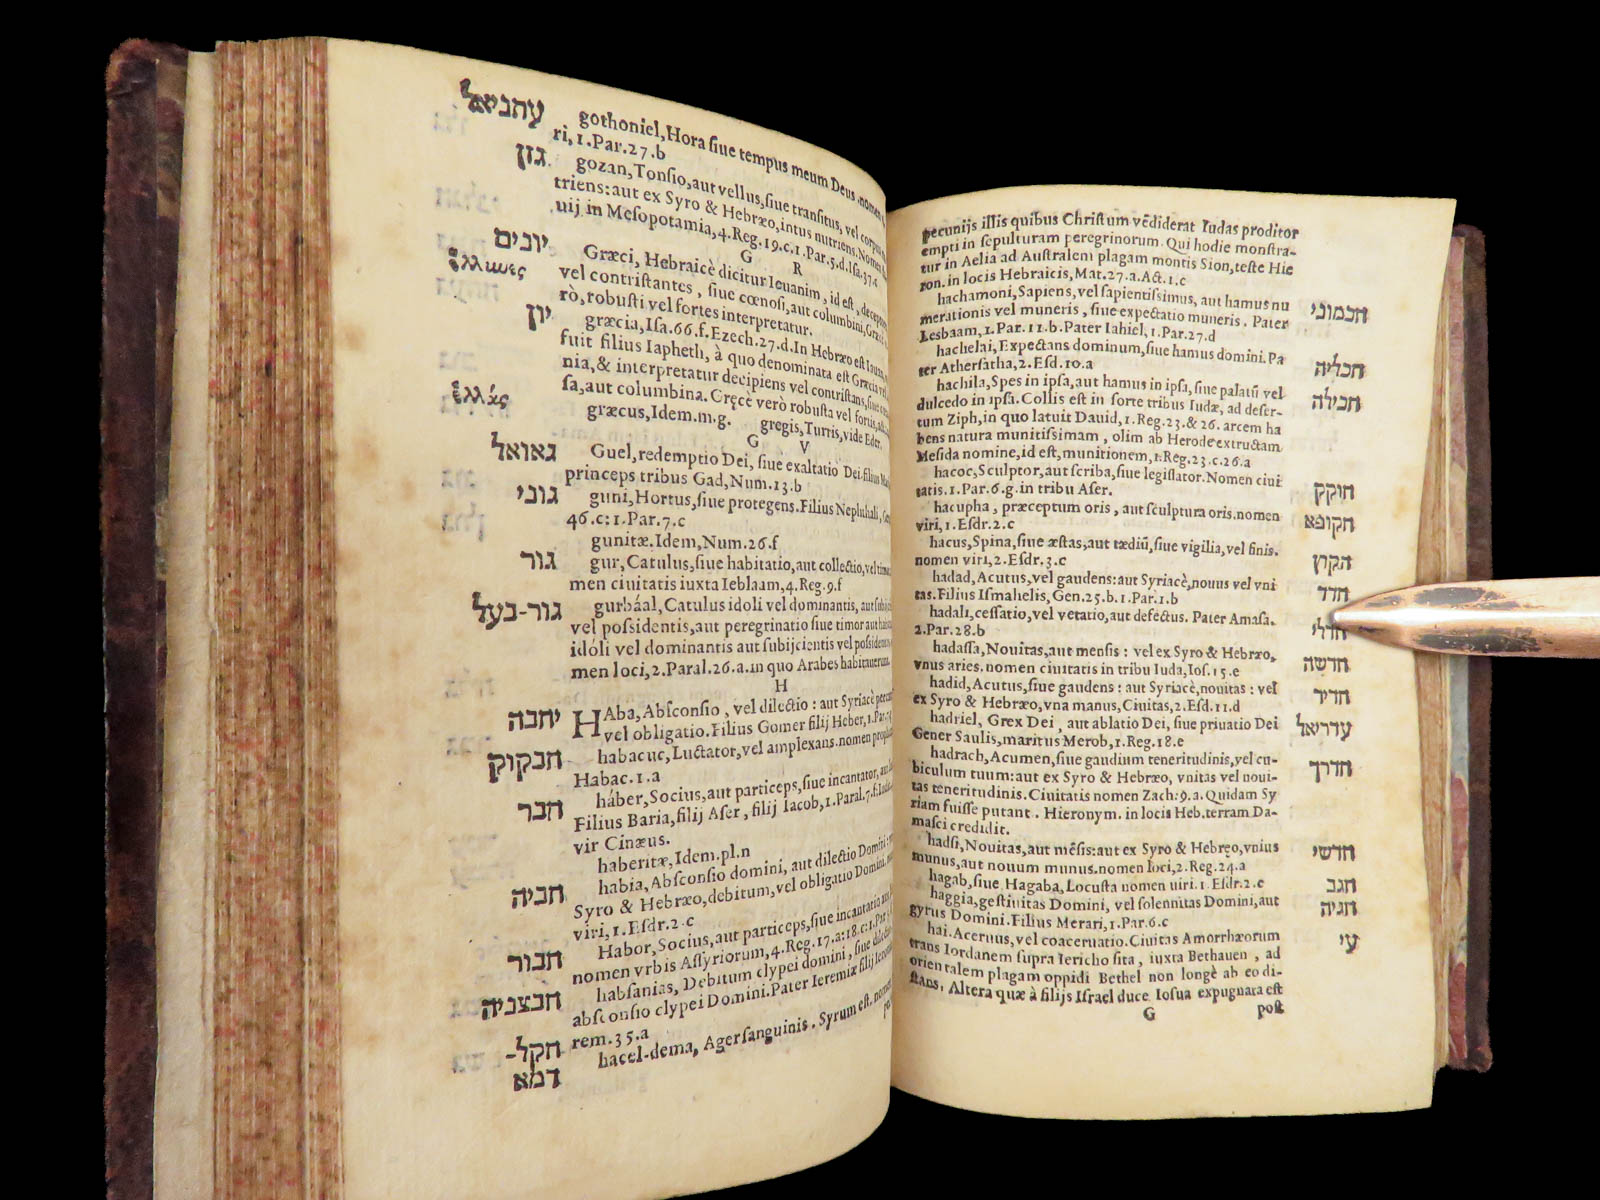 עתניאל gothoniel, Hora siue tempus meum Deus. nomen
ri, 1. Par. 27. b
גזן gozan, Tonsio, aut vellus, siue transitus, vel corpus
triens: aut ex Syro & Hebræo, intus nutriens. Nomen
uij in Mesopotamia, 4. Reg. 19. c. 1. Par. 5. d. Isa. 37.
G R
יונים Græci, Hebraicè dicitur Ieuanim, id est, deceptores
ἕλληνες vel contristantes, siue cœnosi, aut columbini, Græcè
rò, robusti vel fortes interpretatur.
יון græcia, Isa. 66. f. Ezech. 27. d. In Hebræo est Iauan,
fuit filius Iapheth, à quo denominata est Græcia vel
nia, & interpretatur decipiens vel contristans, siue
ἑλλάς sa, aut columbina. Gręcè verò robusta vel fortis,
græcus, Idem. m. g. gregis, Turris, vide Eder.
G V
גאואל Guel, redemptio Dei, siue exaltatio Dei. filius
princeps tribus Gad, Num. 13. b
גוני guni, Hortus, siue protegens. Filius Nephthali,
46. c: 1. Par. 7. c
gunitæ. Idem, Num. 26. f
גור gur, Catulus, siue habitatio, aut collectio, vel
men ciuitatis iuxta Ieblaam, 4. Reg. 9. f
גור-בעל gurbáal, Catulus idoli vel dominantis, aut
vel possidentis, aut peregrinatio siue timor aut
idoli vel dominantis aut subijcientis vel
men loci, 2. Paral. 26. a. in quo Arabes habitauerunt.
H
יחבה HAba, Absconsio, vel dilectio: aut Syriacè
vel obligatio. Filius Gomer filij Heber, 1. Par. 7.
חבקוק habacuc, Luctator, vel amplexans. nomen
Habac. 1. a
חבר háber, Socius, aut particeps, siue incantator,
Filius Baria, filij Aser, filij Iacob, 1. Paral. 7. f.
vir Cinæus.
haberitæ, Idem. pl. n
חביה habia, Absconsio domini, aut dilectio Domini:
Syro & Hebræo, debitum, vel obligatio Domini.
viri, 1. Esdr. 2. c
חבור Habor, Socius, aut particeps, siue incantatio
nomen vrbis Assyriorum, 4. Reg. 17. a: 18. c: 1. Par
חבצניה habsanias, Debitum clypei domini, siue
absconsio clypei Domini. Pater Ieremiæ filij
rem. 35. a
חקל- hacel-dema, Ager sanguinis. Syrum est.
דמא
pecunijs illis quibus Christum vẽdiderat Iudas proditor
empti in sepulturam peregrinorum. Qui hodie monstra-
tur in Aelia ad Australem plagam montis Sion, teste Hie
ron. in locis Hebraicis, Mat. 27. a. Act. 1. c
hachamoni, Sapiens, vel sapientissimus, aut hamus nu חכמוני
merationis vel muneris, siue expectatio muneris. Pater
Lesbaam, 1. Par. 11. b. Pater Iahiel, 1. Par. 27. d
hachelai, Expectans dominum, siue hamus domini. Pa חכליה
ter Athersatha, 2. Esd. 10. a
hachila, Spes in ipsa, aut hamus in ipsa, siue palatũ vel חכילה
dulcedo in ipsa. Collis est in sorte tribus Iudæ, ad deser-
tum Ziph, in quo latuit Dauid, 1. Reg. 23. & 26. arcem ha
bens natura munitissimam, olim ab Herode extructam
Mesida nomine, id est, munitionem, 1. Reg. 23. c. 26. a
hacoc, Sculptor, aut scriba, siue legislator. Nomen ciui חוקק
tatis. 1. Par. 6. g. in tribu Aser.
hacupha, præceptum oris, aut sculptura oris. nomen חקופא
viri, 1. Esdr. 2. c
hacus, Spina, siue æstas, aut tædiũ, siue vigilia, vel finis. הקוץ
nomen viri, 2. Esdr. 3. c
hadad, Acutus, vel gaudens: aut Syriacè, nouus vel vni חדד
tas. Filius Ismahelis, Gen. 25. b. 1. Par. 1. b
hadali, cessatio, vel vetatio, aut defectus. Pater Amasa. חדלי
2. Par. 28. b
hadassa, Nouitas, aut mensis: vel ex Syro & Hebræo, חדשה
vnus aries. nomen ciuitatis in tribu Iuda, Ios. 15. e
hadid, Acutus, siue gaudens: aut Syriacè, nouitas: vel חדיד
ex Syro & Hebræo, vna manus, Ciuitas, 2. Esd. 11. d
hadriel, Grex Dei, aut ablatio Dei, siue priuatio Dei עדריאל
Gener Saulis, maritus Merob, 1. Reg. 18. e
hadrach, Acumen, siue gaudium teneritudinis, vel cu- חדרך
biculum tuum: aut ex Syro & Hebræo, vnitas vel noui-
tas teneritudinis. Ciuitatis nomen Zach: 9. a. Quidam Sy
riam fuisse putant. Hieronym. in locis Heb. terram Da-
masci credidit.
hadsi, Nouitas, aut mẽsis: aut ex Syro & Hebręo, vnius חדשי
munus, aut nouum munus. nomen loci, 2. Reg. 24. a
hagab, siue Hagaba, Locusta nomen uiri. 1. Esdr. 2. e חגב
haggia, gestiuitas Domini, vel solennitas Domini, aut חגיה
gyrus Domini. Filius Merari, 1. Par. 6. c
hai. Aceruus, vel coaceruatio. Ciuitas Amorrhæorum עי
trans Iordanem supra Iericho sita, iuxta Bethauen, ad
orientalem plagam oppidi Bethel non longè ab eo di-
stans: Altera quæ à filijs Israel duce Iosua expugnata est
G post